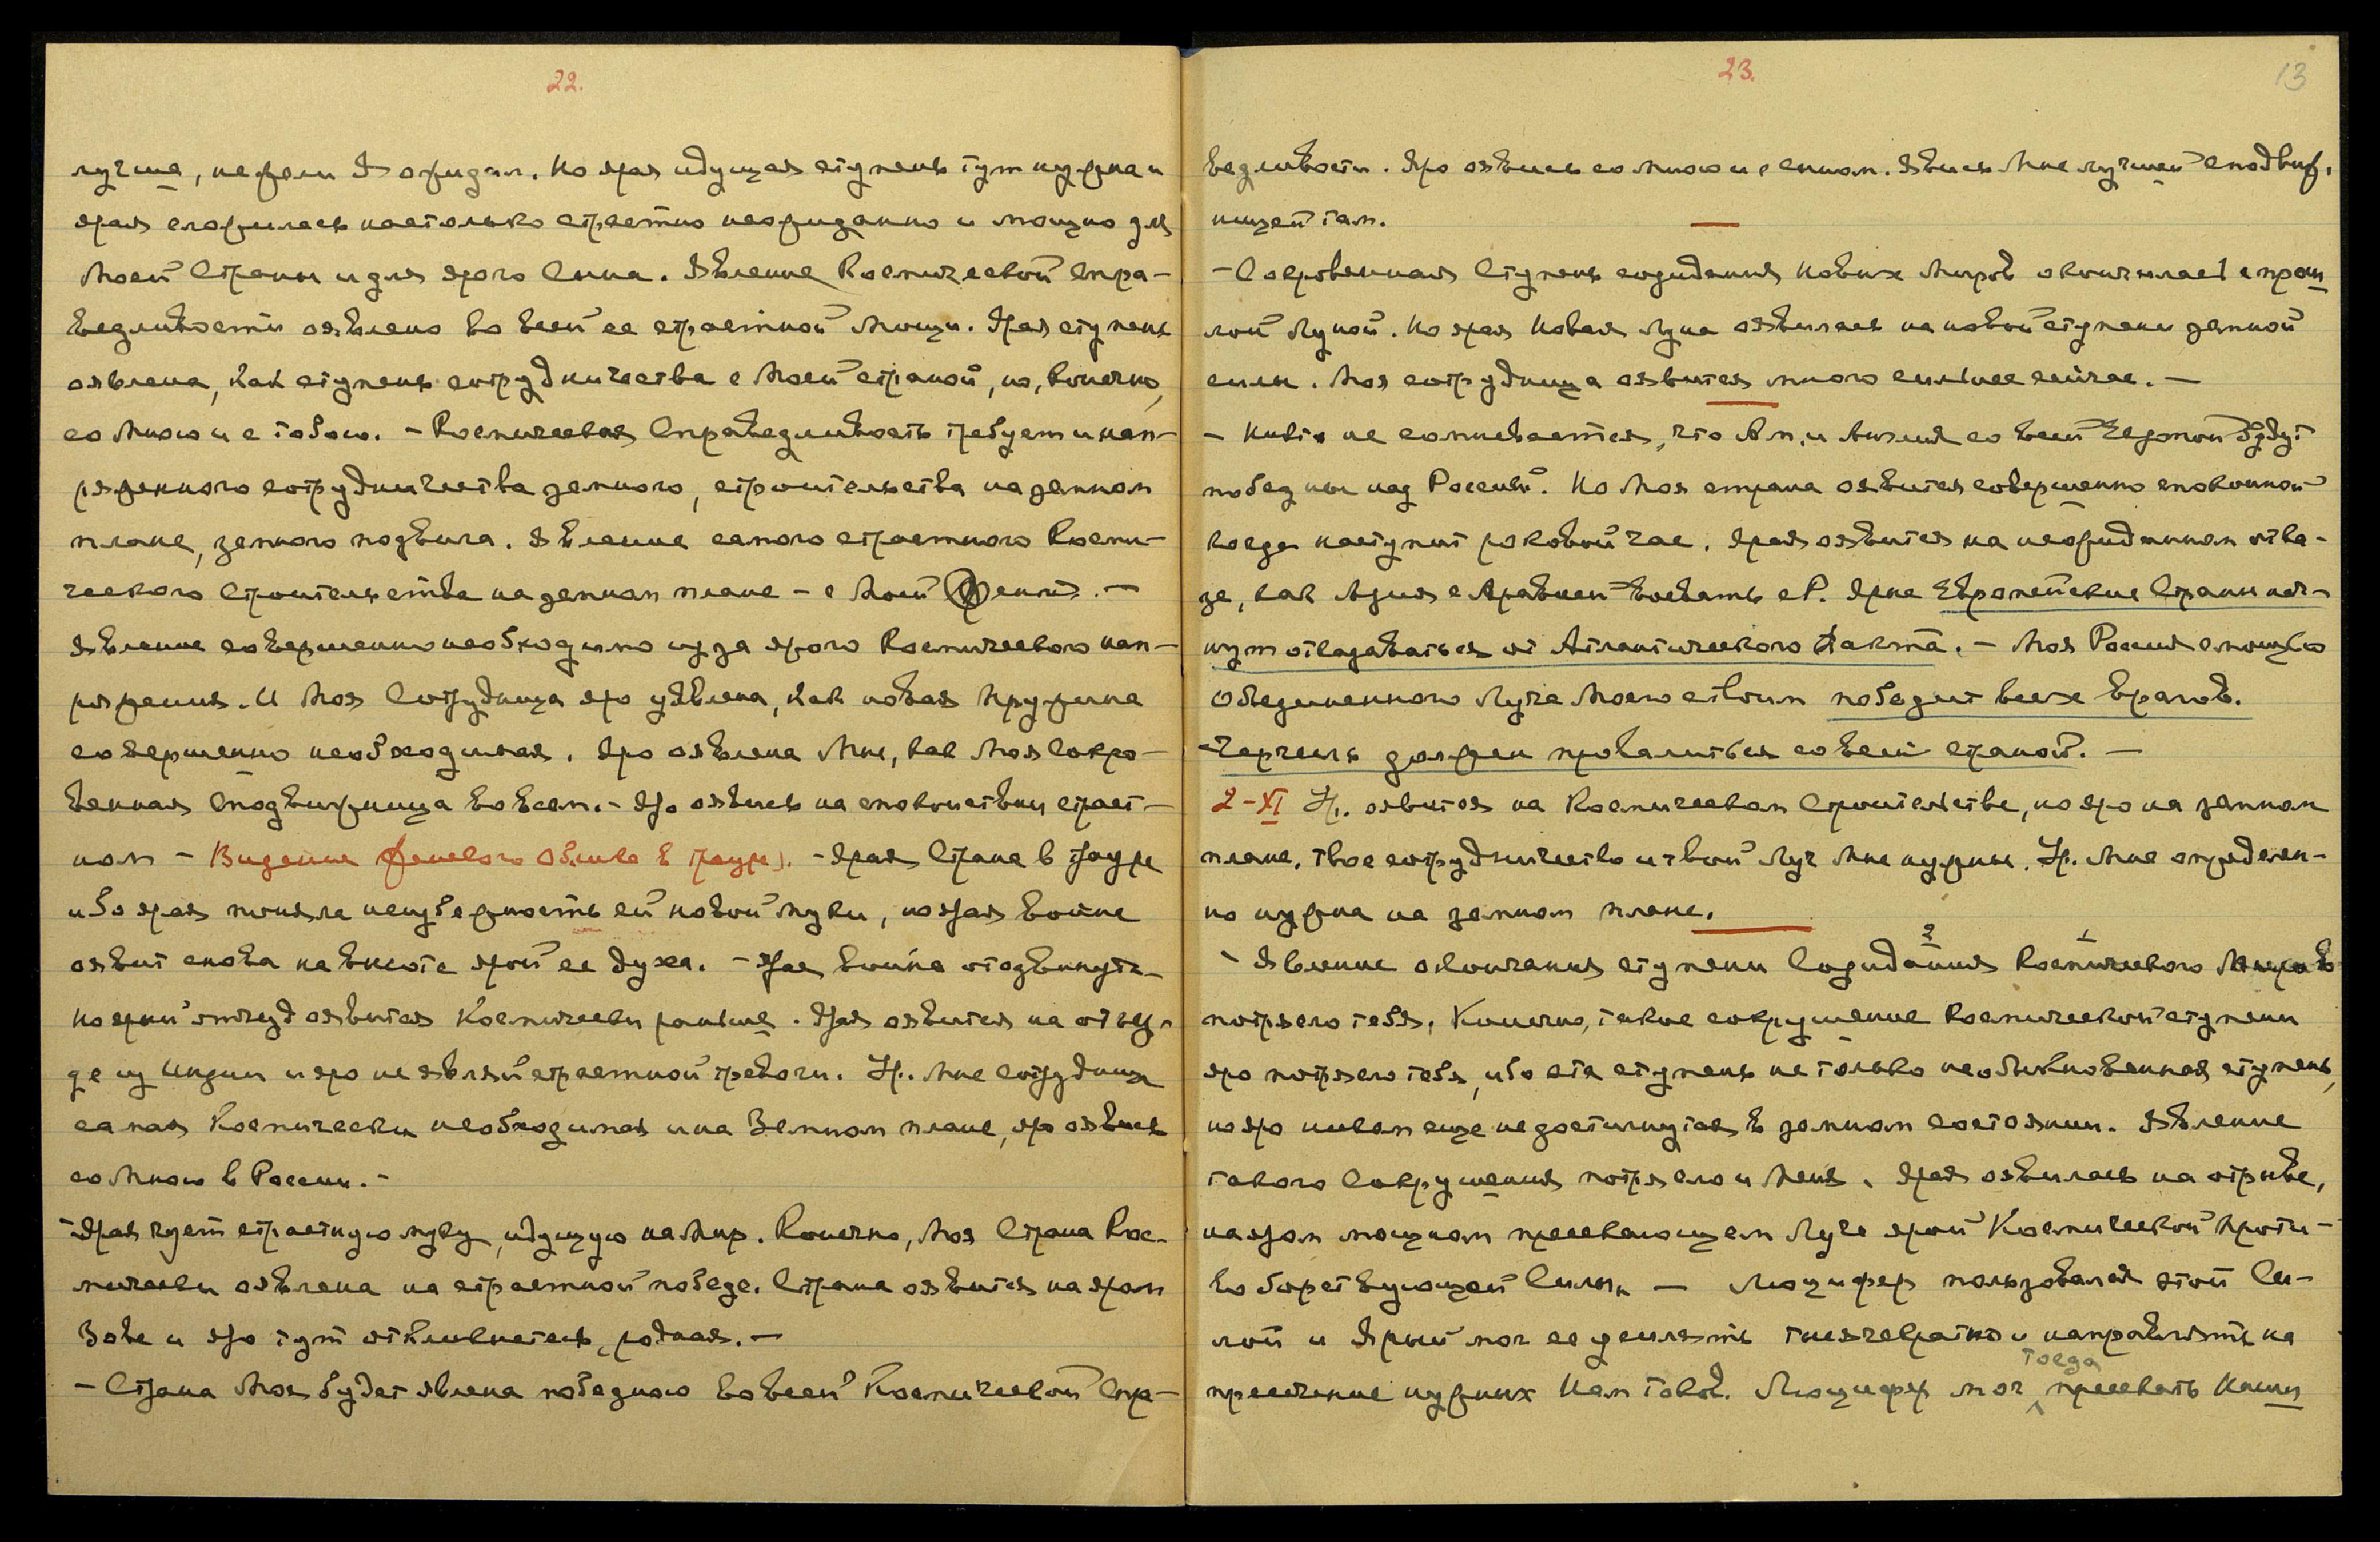 22.
лучше, нежели Я ожидал. Но ярая идущая ступень тут нужна и
ярая сложилась настолько страстно неожиданно и мощно для
Моей Страны и для ярого Сына. Явление Космической Спра-
ведливости оявлено во всей ее страстной Мощи. Ярая ступень
оявлена, как ступень сотрудничества с Моей страной, но, конечно,
со Мною и с тобою. – Космическая Справедливость требует и нап-
ряженного сотрудничества земного, строительства на земном
плане, земного подвига. Явление самого страстного Косми-
ческого строительства на земном плане – с Моей
Явление совершенно необходимо из за ярого Космического нап-
ряжения. И Моя Сотрудница яро уявлена, как новая Пружина
совершенно необходимая. Яро оявлена Мне, как Моя Сокро-
венная Сподвижница во всем. – Яро оявись на спокойствии страст-
ном – Видение Женского Облика в трауре). – Ярая Страна в трауре
ибо ярая поняла неизбежность ей новой муки, но ярая война
оявит снова на высоте ярой ее духа. – Ярая война отодвинута
но ярый отъезд оявится Космически раньше. Ярая оявится на отъез-
де из Индии и яро не являй страстной тревоги. Ур. Мне сотрудница
самая Космически необходимая и на Земном плане, яро оявись
со Мною в России. –
– Ярая чует страстную муку, идущую на Мир. Конечно, Моя Страна Кос-
мически оявлена на страстной победе. Страна оявится на яром
Зове и яро тут откликнетесь, родная. –
– Страна Моя будет явлена победною во всей Космической Спра-
23.
13
ведливости. Яро оявись со Мною и с сыном. Явись Мне лучшей сподвиж-
ницей там.
– Сокровенная Ступень созидания новых Миров окончилась с прош
лой Луной. Но ярая Новая Луна оявилась на новой ступени земной
силы. Моя сотрудница оявится много сильнее сейчас. –
– Никто не сомневается, что Ам. и Англия со всей Европой будут
победны над Россией. Но Моя страна оявится совершенно спокойной
когда наступит роковой час. Ярая оявится на неожиданном отка-
зе, как Азия с Аравией воевать с Р. Ярые Европейские Страны нач-
нут откадываться от Атлантического Пакта. – Моя Россия с мощью
Объединенного Луча Моего с твоим победит всех врагов.
– Черчилль должен провалиться со всей страной. –
2 – XI Ур. оявится на Космическом Строительстве, но яро на земном
плане, твое сотрудничество и твой Луч Мне нужны. Ур. Мне определен-
но нужна на земном плане.
2 1
– Явление окончания ступени Созидания Космического Миров
потрясло тебя, Конечно, такое сокрушение Космической ступени
яро потрясло тебя, ибо эта ступень не только необыкновенная ступень,
но яро никем еще не достигнутая в земном состоянии. Явление
такого Сокрушения потрясло и Меня. Ярая оявилась на отрыве,
на яром мощном пресекающем Луче ярой Космической Проти-
воборствующей Силы. – Люцифер пользовался этой Си-
лой и Ярый мог ее усилять тысячекратно и направлять на
тогда
пресечение нужных Нам токов. Люцифер мог пресекать Наши